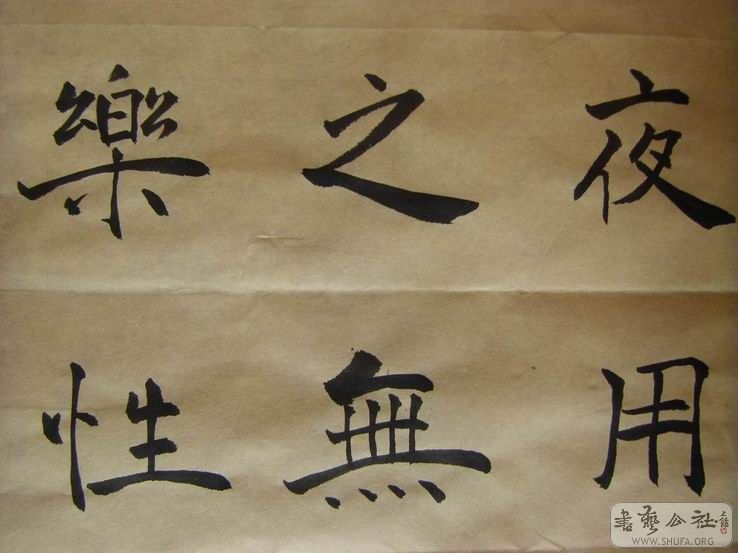 夜用
之無
樂性
書藝公社
WWW.SHUFA.ORG